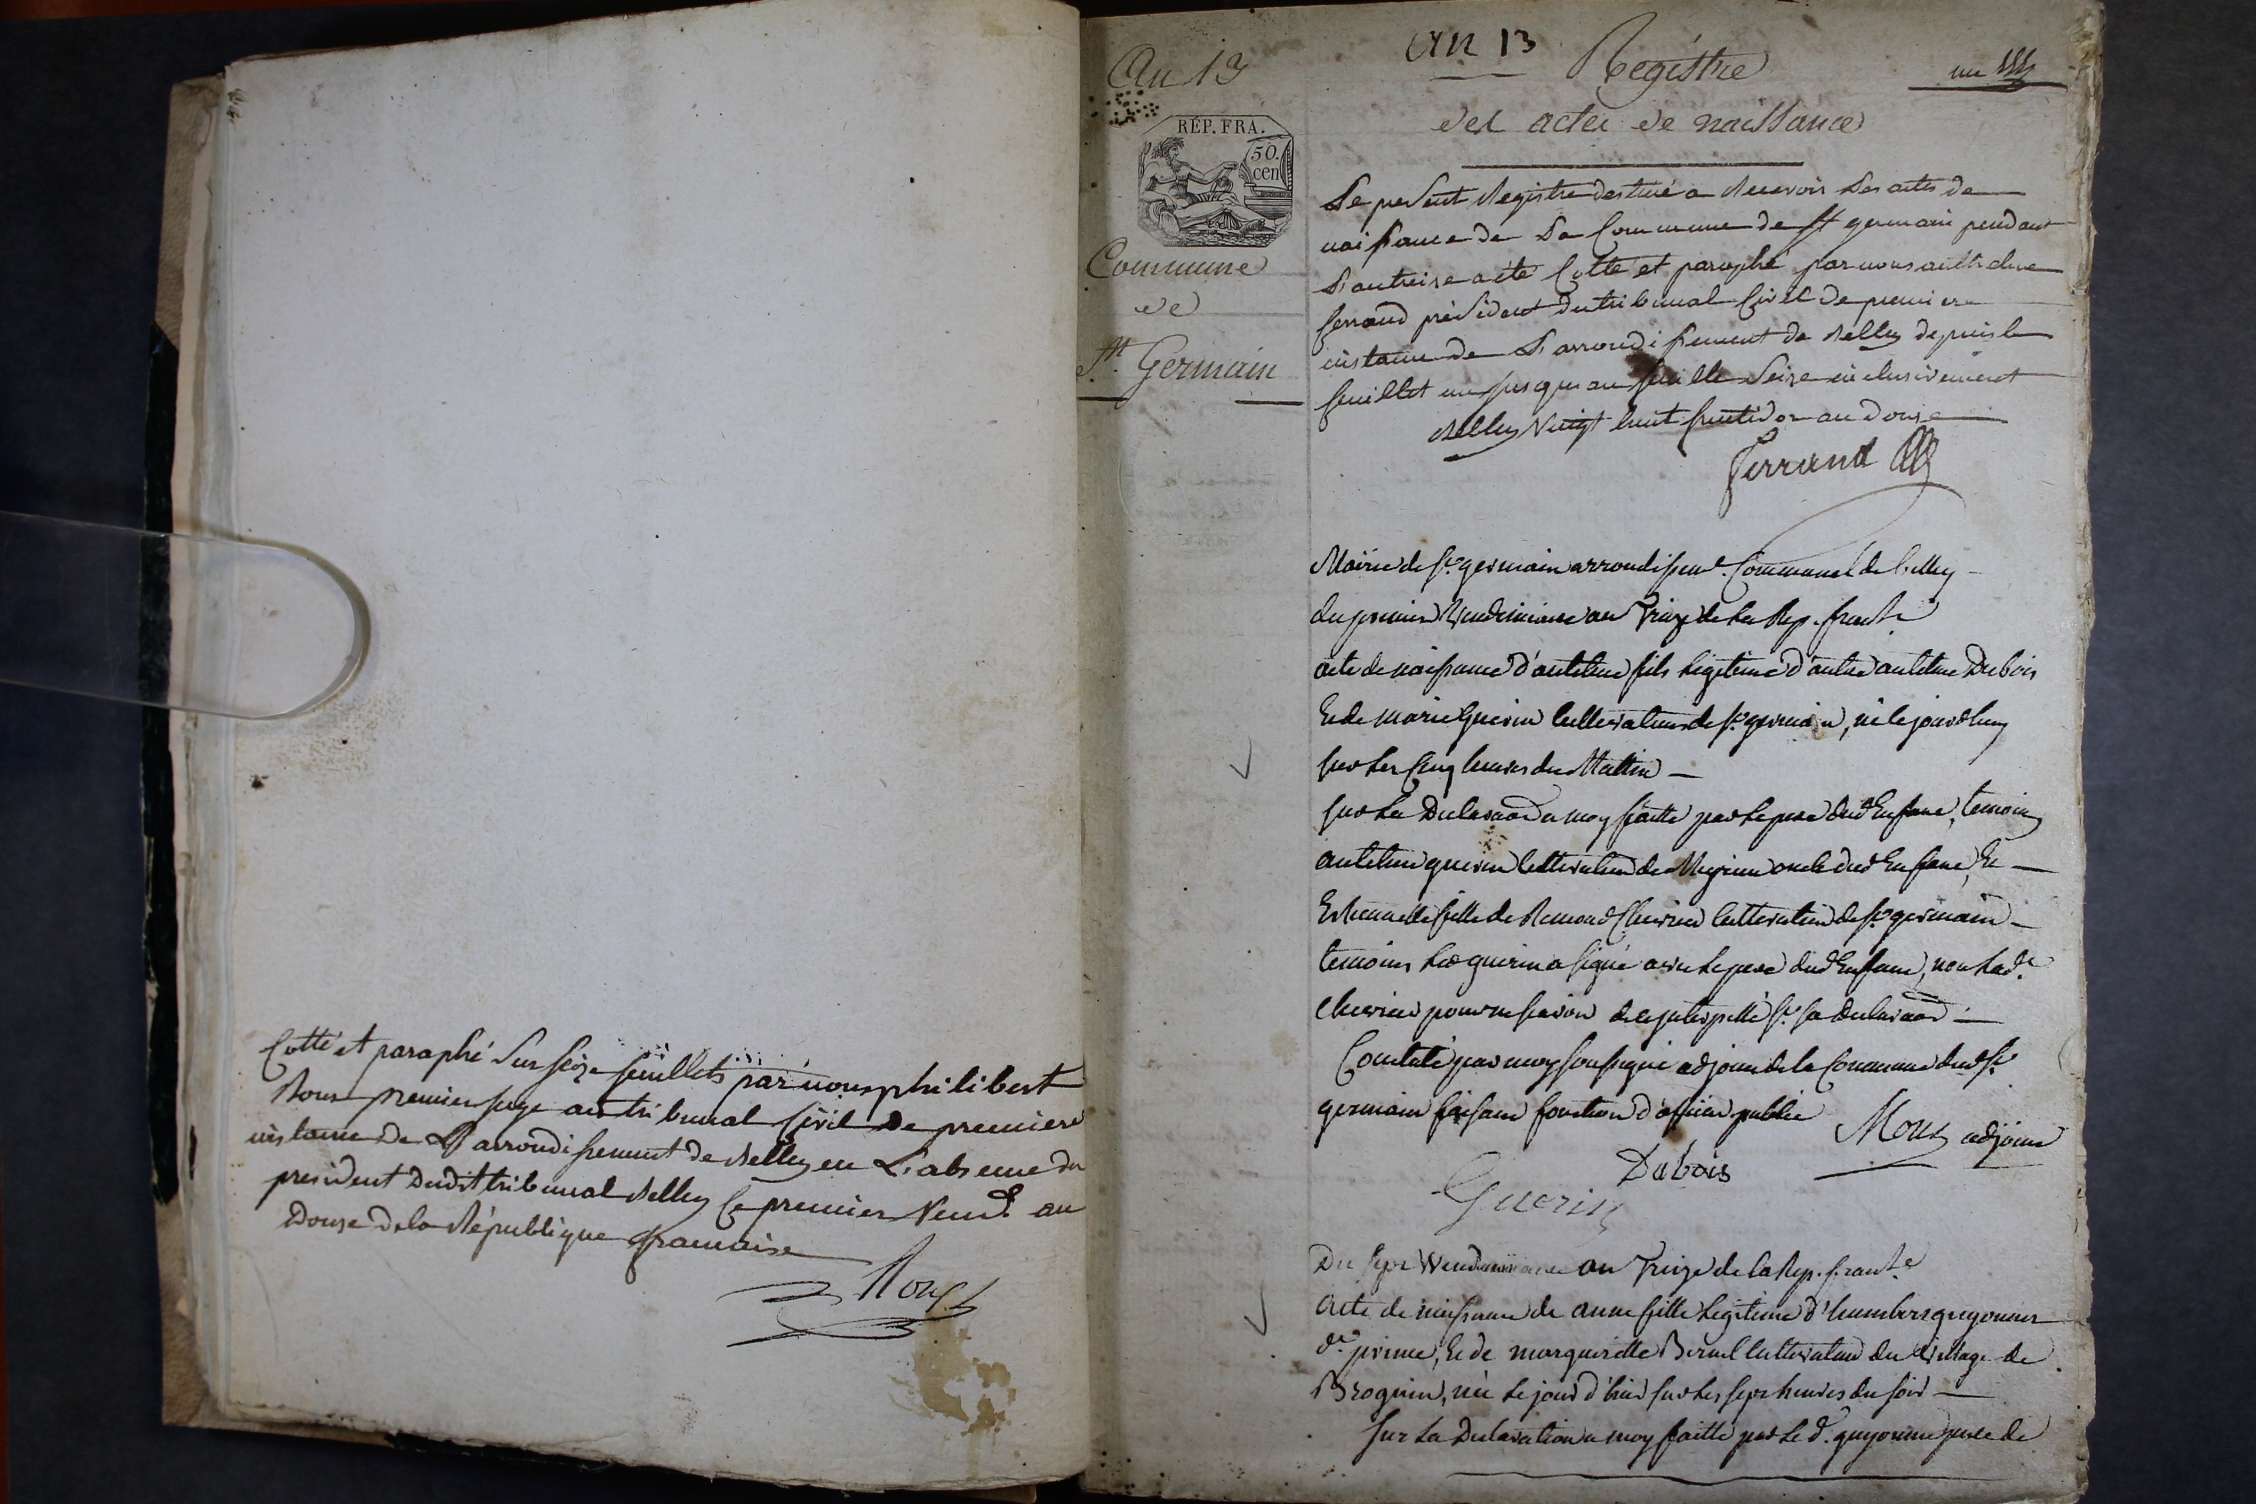 Cotté et paraphé sur seize feuillets par nous philibert
Roux premier juge au tribunal civil de premiere
instance de L'arrondissement de Belley en L'absence du
president dudit tribunal Belley le premier Vend.re an
Douze de la République francaise
Roux
An 13
RÉP. FRA.
50.
cen
Commune
de
St. Germain
an 13
Registre
des actes de naissance
un
Le present Registre destiné a Recevoir Les actes de
naissance de La Commune de St germain pendant
L'an treize a été Cotté et paraphé par nous anthelme
ferrand président du tribunal Civil de premiere
instance de L'arrondissement de Belley depuis le
feuillet un jusqu'au feuillet Seize inclusivement
Belley Vingt huit fructidor an douze
ferrand
Mairie de St. germain arrondissent. Communal de belley
du premier Vendemiaire an Treize de La Rep. franc.e
acte de naissance d'antelme fils Légitime d'autre antelme Dubois
Et de marie Guerin Cultivateurs de St. germain, né le jourdhuy
sur Les cinq heures du Matin
sur La Declaraon a moy faitte par Le pere dud Enfant, temoins
antelme guerin Cultivateur de oncle dud Enfant, Et
fille de Remond Chevrier Cultivateur de St. germain
temoins Led guerin a signé avec Le pere dud Enfant, non Lad.e
chevrier pour ne savoir de ce interpellé st. sa declaraon
Constaté par moy soussigné adjoint de la Commune dud st.
germain faisant fonction d'officier public
Roux adjoint
Dubois
Guerin
Du sept Vendemiaire an Treize de La Rep. franc.e
Acte de naissance de anne fille Légitime d'humbert guyonnet
dt. prince, Et de margueritte Cultivateurs du Village de
Brognin, née Le jour d'hier sur Les sept heures du soir
sur La Declaration a moy faitte par Le d. guyonnet pere de